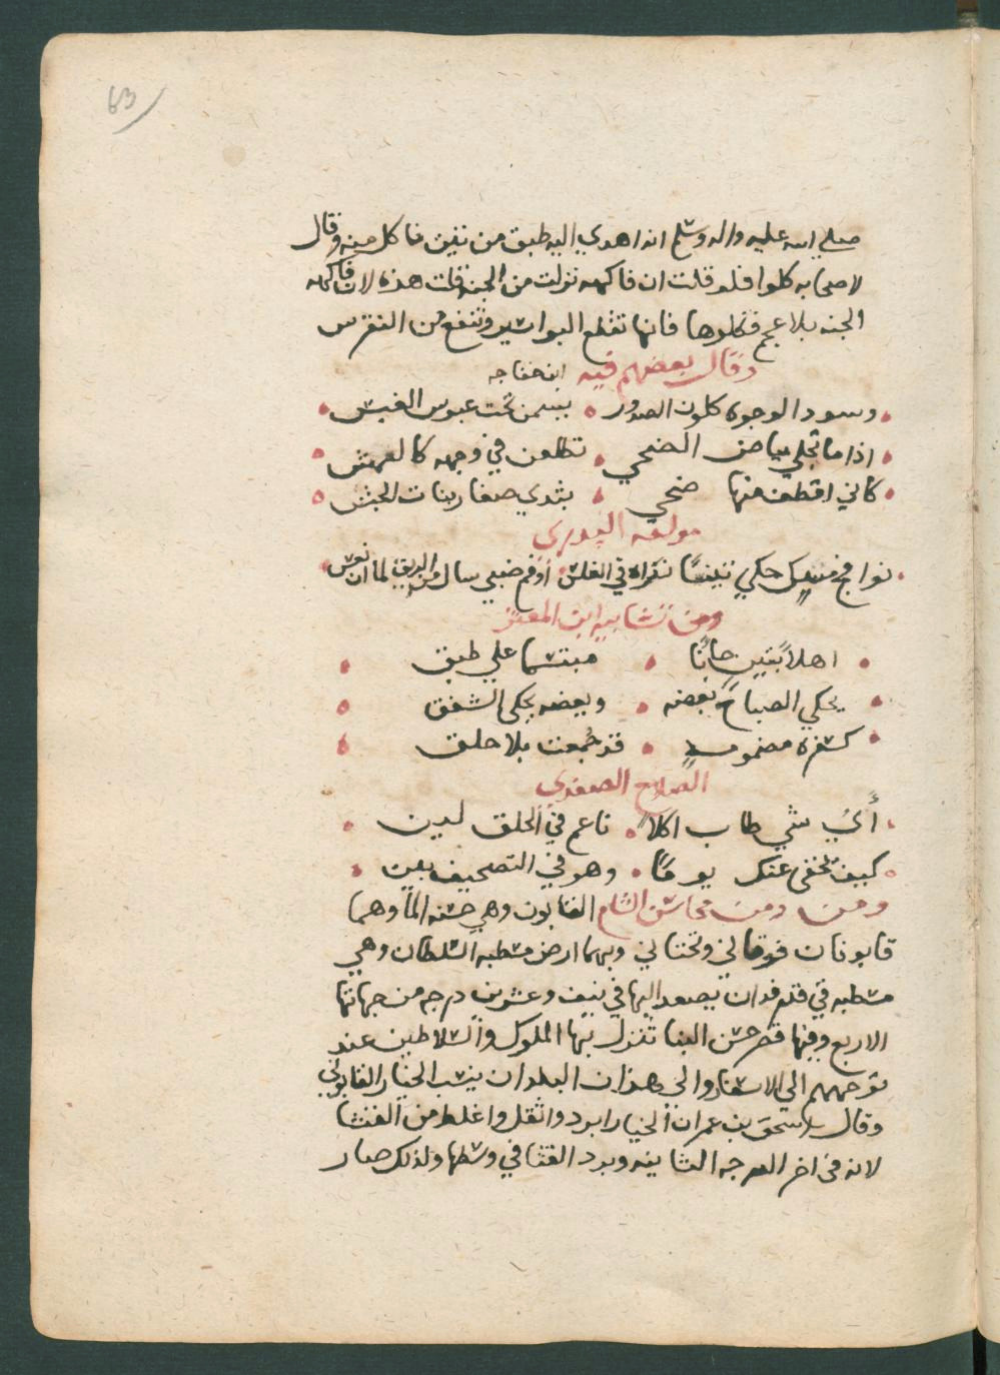 63
صلي الله عليه واله وسلم انه اهدي اليه طبق من تين فاكل منه وقال
لاصحابه كلوا فلو قلت ان فاكهه نزلت من الجنه قلت هذه لان فاكهه
الجنه بلا عجم فكلوها فانها تقطع البواسير وتنفع من النقرس
وقال بعضهم فيه ابن خفاجه
وسود الوجوه كلون الصدور • يبسمن تحت عبوس الغبش •
اذا ما تجلي بياض الضحي • تطلعن في وجهه كالنمش •
كاني اقطف منها ضحي • بثدي صغار بنات الحبش •
مولفه البدري
نوافج مسك حكي تينسًا نقراه في الغلس • او فم ضبي سال من الريق لما ان نعس
ومن تشابيه ابن المعتز
• اهلاً بتين جانا • مبتسما علي طبق •
• يحكي الصباح بعضه • وبعضه يحكي الشفق •
• كسفرة مضمومة • قد جُمعت بلا حلق •
الصلاح الصفدي
أي شي طاب اكلا • ناعم في الحلق لين •
كيف يخفي عنك يوما • وهو في التصحيف بين •
ومن ومن محاسن الشام القابون وهي حسنه الماء وهما
قابونان فوقاني وتحتاني وبهما ارض مسطبه السلطان وهي
مسطبه في فدان يصعد اليها في نيف وعشرين درجه من جهاتها
الاربع وفيها قصر حسن البنا تنزل بها الملوك والسلاطين عند
توجههم الي الاسفار والي هذان البلدان ينسب الخيار القابوني
وقال اسحق بن عمران الخيار ابرد واثقل واغلظ من القثا
لانه في اخر الدرجه الثانيه وبرد القثا في وسطها ولذلك صار